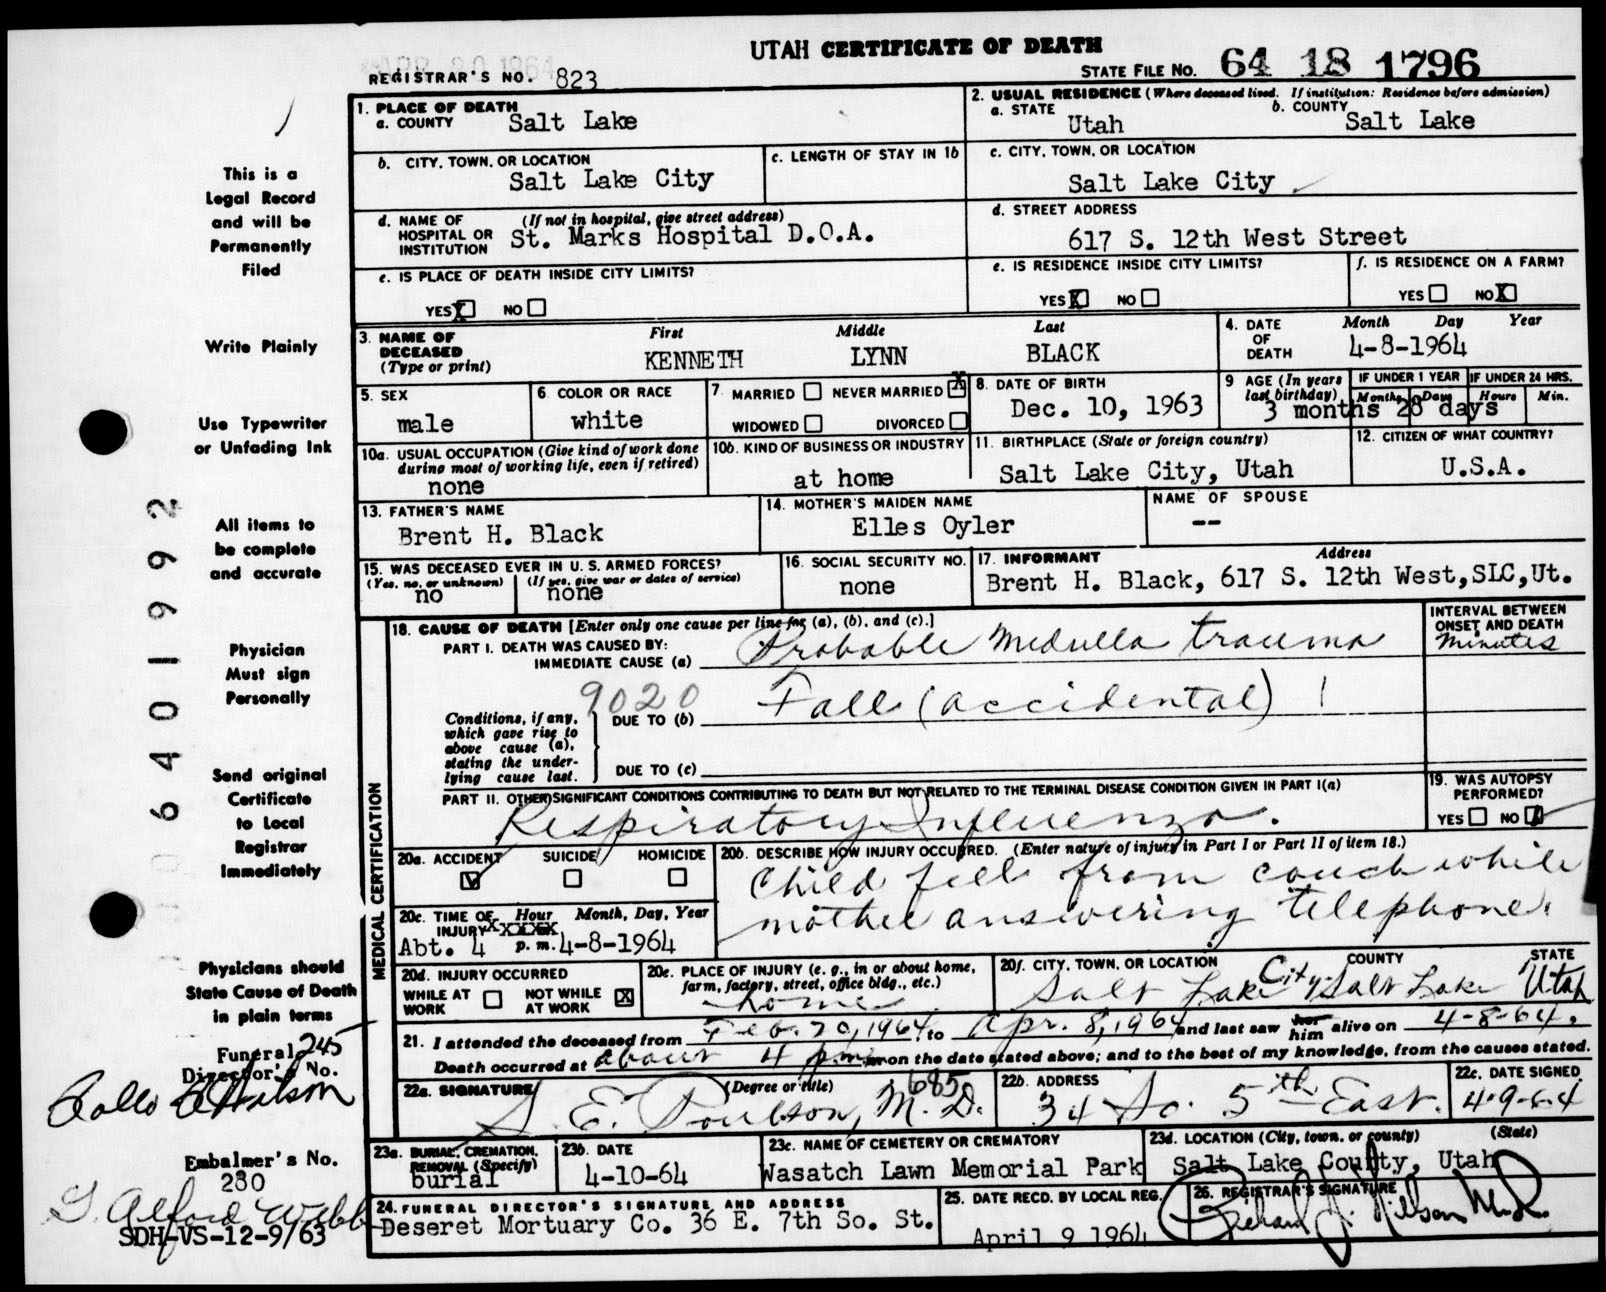 UTAH CERTIFICATE OF DEATH
APR 20 1964
REGISTRAR'S NO. 823
STATE FILE NO. 64 18 1796
1. PLACE OF DEATH
a. COUNTY Salt Lake
2. USUAL RESIDENCE (Where deceased lived. If institution: Residence before admission)
a. STATE Utah
b. COUNTY Salt Lake
b. CITY, TOWN, OR LOCATION
Salt Lake City
c. LENGTH OF STAY IN 1b
c. CITY, TOWN, OR LOCATION
Salt Lake City
d. NAME OF HOSPITAL OR INSTITUTION
(If not in hospital, give street address)
St. Marks Hospital D.O.A.
d. STREET ADDRESS
617 S. 12th West Street
e. IS PLACE OF DEATH INSIDE CITY LIMITS?
YES X NO
e. IS RESIDENCE INSIDE CITY LIMITS?
YES X NO
f. IS RESIDENCE ON A FARM?
YES NO X
3. NAME OF DECEASED (Type or print)
First Middle Last
KENNETH LYNN BLACK
4. DATE OF DEATH
Month Day Year
4-8-1964
5. SEX
male
6. COLOR OR RACE
white
7. MARRIED NEVER MARRIED X
WIDOWED DIVORCED
8. DATE OF BIRTH
Dec. 10, 1963
9 AGE (In years last birthday)
IF UNDER 1 YEAR
Months Days
IF UNDER 24 HRS.
Hours Min.
3 months 28 days
10a. USUAL OCCUPATION (Give kind of work done during most of working life, even if retired)
none
10b. KIND OF BUSINESS OR INDUSTRY
at home
11. BIRTHPLACE (State or foreign country)
Salt Lake City, Utah
12. CITIZEN OF WHAT COUNTRY?
U.S.A.
13. FATHER'S NAME
Brent H. Black
14. MOTHER'S MAIDEN NAME
Elles Oyler
NAME OF SPOUSE
--
15. WAS DECEASED EVER IN U. S. ARMED FORCES?
(Yes, no, or unknown) (If yes, give war or dates of service)
no none
16. SOCIAL SECURITY NO.
none
17. INFORMANT Address
Brent H. Black, 617 S. 12th West,SLC,Ut.
MEDICAL CERTIFICATION
18. CAUSE OF DEATH [Enter only one cause per line for (a), (b), and (c).]
PART I. DEATH WAS CAUSED BY:
IMMEDIATE CAUSE (a) Probable Medulla trauma
INTERVAL BETWEEN ONSET AND DEATH
Minutes
9020
Conditions, if any, which gave rise to above cause (a), stating the under-lying cause last.
DUE TO (b) Fall (accidental)
DUE TO (c)
PART II. OTHER SIGNIFICANT CONDITIONS CONTRIBUTING TO DEATH BUT NOT RELATED TO THE TERMINAL DISEASE CONDITION GIVEN IN PART I(a)
Respiratory Influenza.
19. WAS AUTOPSY PERFORMED?
YES NO
20a. ACCIDENT SUICIDE HOMICIDE
20b. DESCRIBE HOW INJURY OCCURRED. (Enter nature of injury in Part I or Part II of item 18.)
Child fell from couch while
mother answering telephone.
20c. TIME OF INJURY Hour Month, Day, Year
Abt. 4 p. m. 4-8-1964
20d. INJURY OCCURRED
WHILE AT WORK NOT WHILE AT WORK X
20e. PLACE OF INJURY (e. g., in or about home, farm, factory, street, office bldg., etc.)
home
20f. CITY, TOWN, OR LOCATION COUNTY STATE
Salt Lake City Salt Lake Utah
21. I attended the deceased from Feb. 20, 1964, to Apr. 8, 1964 and last saw her him alive on 4-8-64.
Death occurred at about 4 p.m. m on the date stated above; and to the best of my knowledge, from the causes stated.
22a. SIGNATURE (Degree or title)
S. E. Poulson, M.D. 685
22b. ADDRESS
34 So. 5th East.
22c. DATE SIGNED
4-9-64
23a. BURIAL, CREMATION, REMOVAL (Specify)
burial
23b. DATE
4-10-64
23c. NAME OF CEMETERY OR CREMATORY
Wasatch Lawn Memorial Park
23d. LOCATION (City, town, or county) (State)
Salt Lake County, Utah
24. FUNERAL DIRECTOR'S SIGNATURE AND ADDRESS
Deseret Mortuary Co. 36 E. 7th So. St.
25. DATE RECD. BY LOCAL REG.
April 9 1964
26. REGISTRAR'S SIGNATURE
This is a
Legal Record
and will be
Permanently
Filed
Write Plainly
Use Typewriter
or Unfading Ink
All items to
be complete
and accurate
Physician
Must sign
Personally
Send original
Certificate
to Local
Registrar
Immediately
Physicians should
State Cause of Death
in plain terms
Funeral 245
Director's No.
Embalmer's No.
280
SDH-VS-12-9/63
6401992